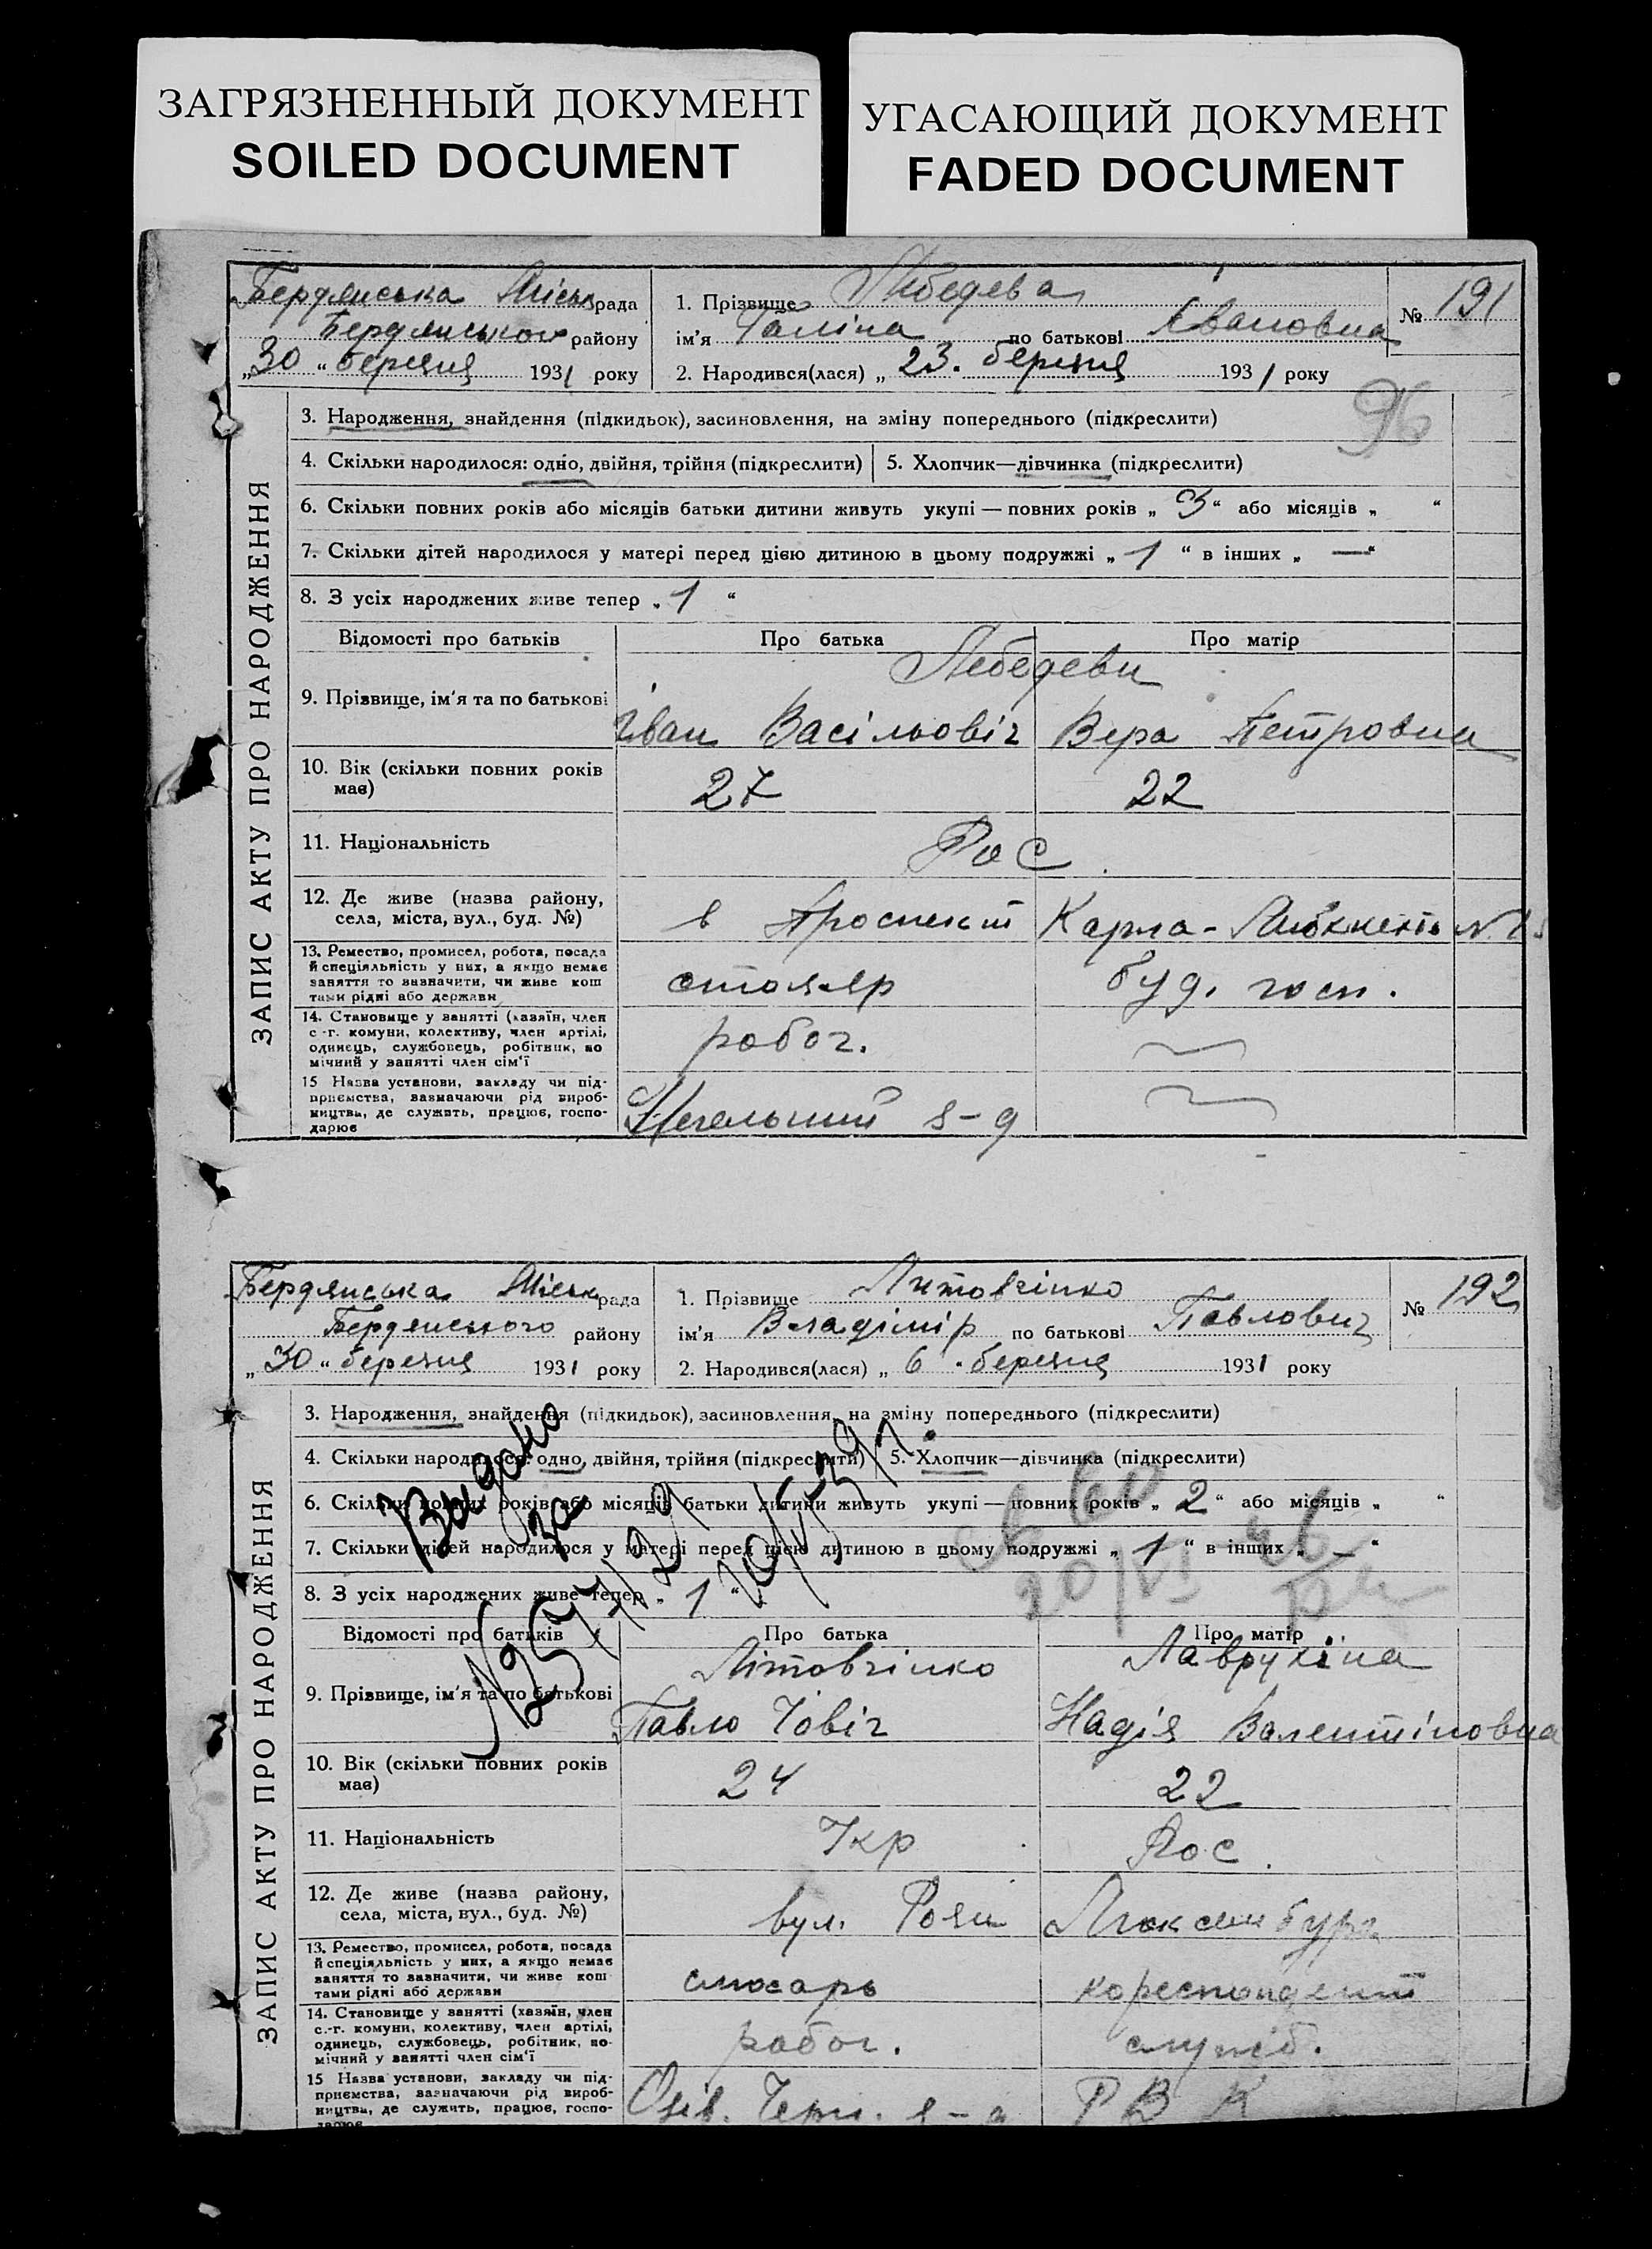 ЗАГРЯЗНЕННЫЙ ДОКУМЕНТ
SOILED DOCUMENT
УГАСАЮЩИЙ ДОКУМЕНТ
FADED DOCUMENT
Бердянська Міськ рада
Бердянського району
„30“ березня 1931 року
1. Прізвище Лебедева
ім'я Галіна по батькові Івановна
2. Народився(лася) „23. березня 1931 року
№ 191
96
ЗАПИС АКТУ ПРО НАРОДЖЕННЯ
3. Народження, знайдення (підкидьок), засиновлення, на зміну попереднього (підкреслити)
4. Скільки народилося: одно, двійня, трійня (підкреслити) 5. Хлопчик—дівчинка (підкреслити)
6. Скільки повних років або місяців батьки дитини живуть укупі — повних років „3“ або місяців „ “
7. Скільки дітей народилося у матері перед цією дитиною в цьому подружжі „1“ в інших „—“
8. З усіх народжених живе тепер „1“
Відомості про батьків Про батька Про матір
Лебедеви
9. Прізвище, ім'я та по батькові Іван Васільовіч Вера Петровна
10. Вік (скільки повних років має) 27 22
11. Національність Рос
12. Де живе (назва району, села, міста, вул., буд. №) в Проспект Карла-Лібкнехта №
13. Ремество, промисел, робота, посада й спеціяльність у них, а якщо немає заняття то зазначити, чи живе кош тами рідні або держави столяр буд. госп.
14. Становище у занятті (хазяїн, член с.-г. комуни, колективу, член артілі, одинець, службовець, робітник, по мічний у занятті член сім'ї робоч.
15 Назва установи, закладу чи під- приємства, зазначаючи рід вироб- ництва, де служить, працює, госпо- дарює з-д
Бердянська Міськ рада
Бердянського району
„30“ березня 1931 року
1. Прізвище Литовчінко
ім'я Владімір по батькові Павлович
2. Народився(лася) „6. березня 1931 року
№ 192
ЗАПИС АКТУ ПРО НАРОДЖЕННЯ
3. Народження, знайдення (підкидьок), засиновлення, на зміну попереднього (підкреслити)
4. Скільки народилося: одно, двійня, трійня (підкреслити) 5. Хлопчик—дівчинка (підкреслити)
6. Скільки повних років або місяців батьки дитини живуть укупі — повних років „2“ або місяців „ “
7. Скільки дітей народилося у матері перед цією дитиною в цьому подружжі „1“ в інших „—“
8. З усіх народжених живе тепер „1“
Видано
за
20/VI
Відомості про батьків Про батька Про матір
Літовчінко Лаврухіна
9. Прізвище, ім'я та по батькові Павло Надія Валентіновна
10. Вік (скільки повних років має) 24 22
11. Національність Укр Рос.
12. Де живе (назва району, села, міста, вул., буд. №) вул. Рози Люксембург
13. Ремество, промисел, робота, посада й спеціяльність у них, а якщо немає заняття то зазначити, чи живе кош тами рідні або держави слюсарь кореспондент
14. Становище у занятті (хазяїн, член с.-г. комуни, колективу, член артілі, одинець, службовець, робітник, по- мічний у занятті член сім'ї робоч. служб.
15 Назва установи, закладу чи під- приємства, зазначаючи рід вироб- ництва, де служить, працює, госпо- дарює Р В К